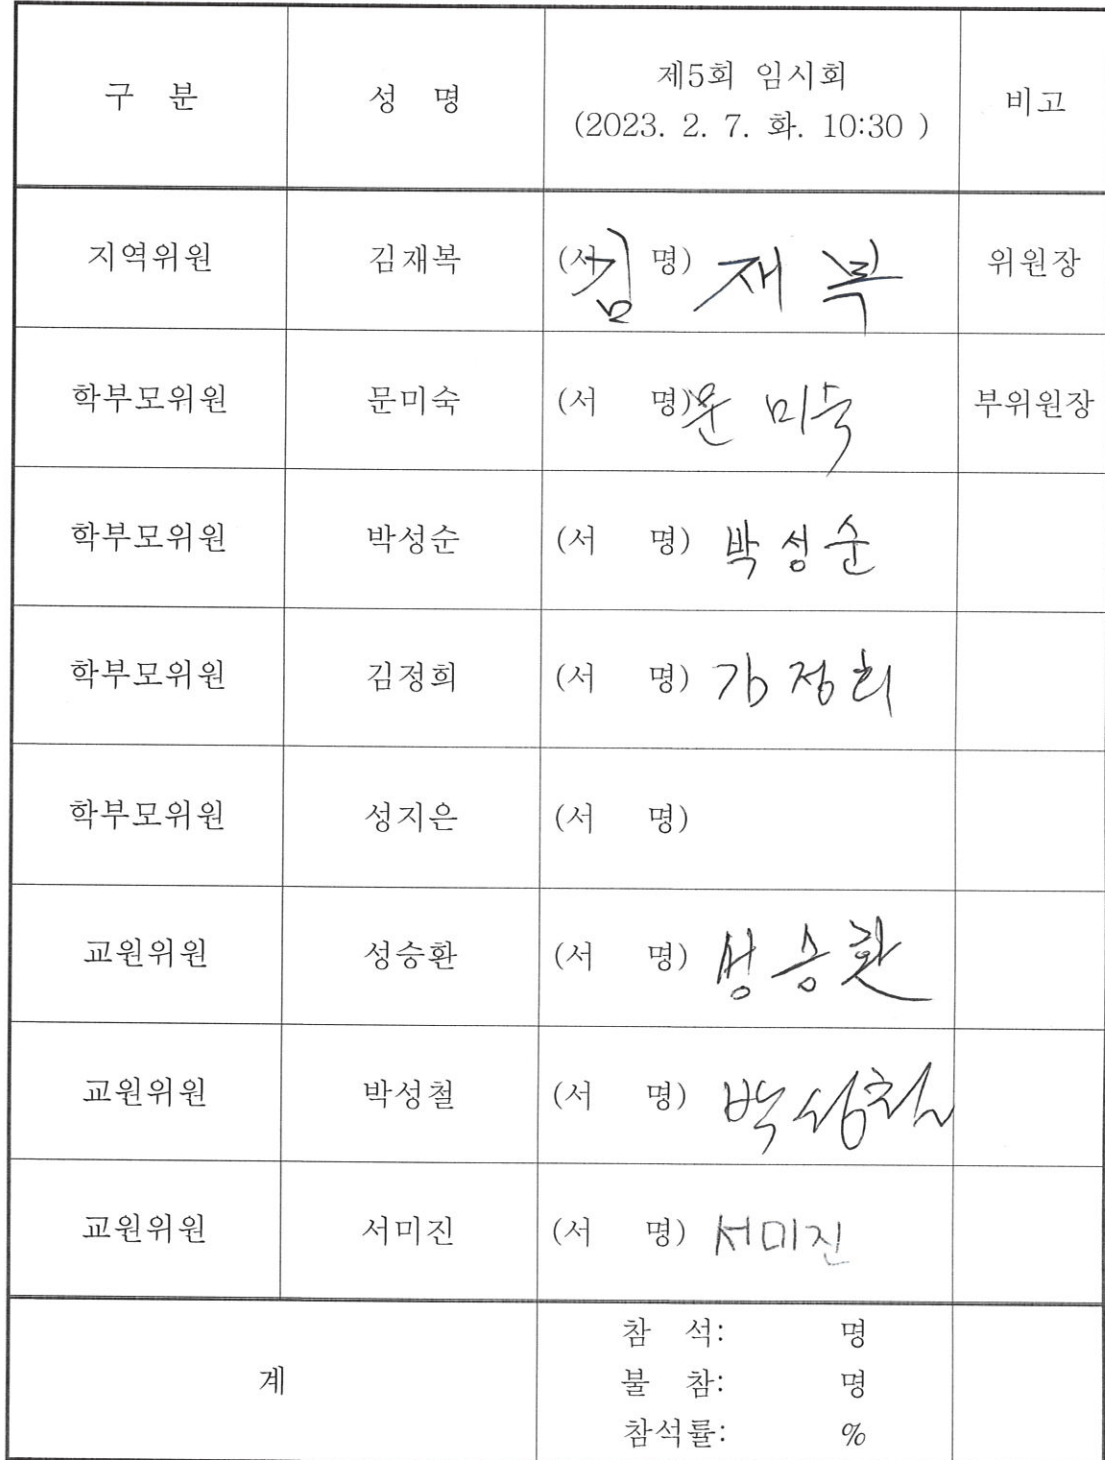 구 분 성 명 제5회 임시회 비고
(2023. 2. 7. 화. 10:30 )
지역위원 김재복 (서 명) 김재복 위원장
학부모위원 문미숙 (서 명) 문미숙 부위원장
학부모위원 박성순 (서 명) 박성순
학부모위원 김정희 (서 명) 김정희
학부모위원 성지은 (서 명)
교원위원 성승환 (서 명) 성승환
교원위원 박성철 (서 명) 박성철
교원위원 서미진 (서 명) 서미진
계 참 석: 명
불 참: 명
참석률: %